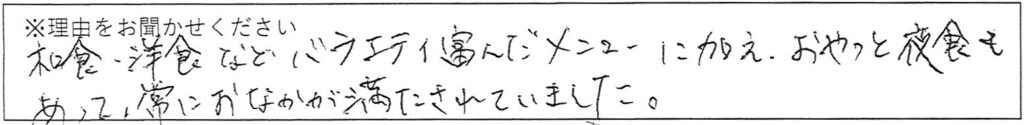 ※理由をお聞かせください
和食・洋食などバラエティ富んだメニューに加え、おやつと夜食も
あって、常におなかが満たされていました。